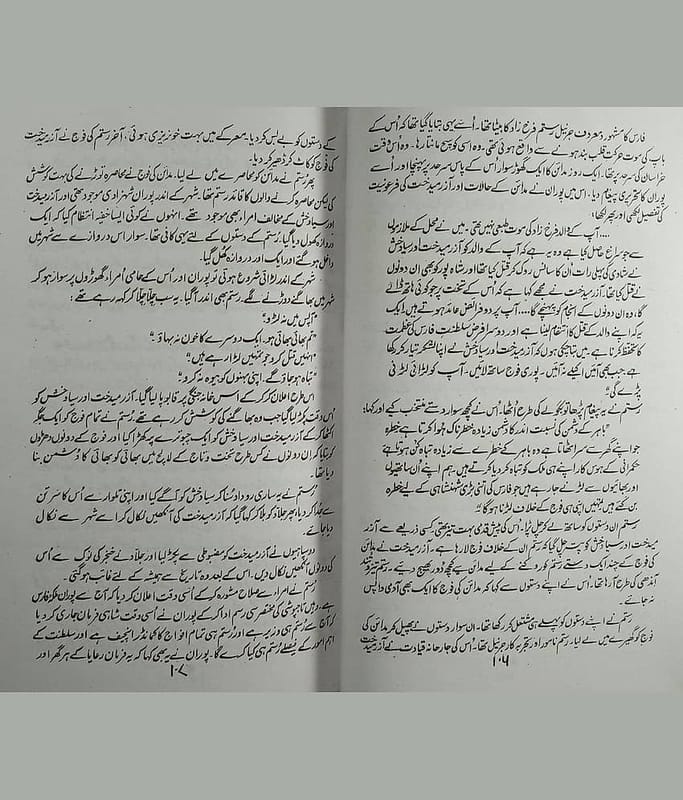 فارس کا مشہور و معروف جرنیل رستم فرخ زاد کا بیٹا تھا۔ اُسے یہی بتایا گیا تھا کہ اُس کے
باپ کی موت حرکتِ قلب بند ہونے سے واقع ہوئی تھی۔ وہ اسی کو سچ مانتا رہا۔ وہ اُس وقت
خراسان کی سرحد پر تھا۔ ایک روز مدائن کا ایک گھوڑ سوار اُس کے پاس سرحد پر پہنچا اور اُسے
پوران کا تحریری پیغام دیا۔ اس میں پوران نے مدائن کے حالات اور آزرمیدخت کی فرعونیت
کی تفصیل لکھی اور پھر لکھا:
"....آپ کے والد فرخ زاد کی موت طبعی نہیں تھی۔ میں نے محل کے ملازموں
سے جو سراغ حاصل کیا ہے وہ یہ ہے کہ آپ کے والد کو آزرمیدخت اور سیاوخش
نے شادی کی پہلی رات اُن کا سانس روک کر قتل کیا تھا اور شاہ پور کو بھی ان دونوں
نے قتل کیا تھا۔ آزرمیدخت نے مجھے کہا ہے کہ اُس کے تخت پر جو کوئی ہاتھ ڈالے
گا، وہ ان دونوں کے انجام کو پہنچے گا.... آپ پر دو فرائض عائد ہوتے ہیں۔ ایک
یہ کہ اپنے والد کے قتل کا انتقام لینا ہے اور دوسرا فرض سلطنتِ فارس کی عظمت
کا تحفظ کرنا ہے۔ میں بتا چکی ہوں کہ آزرمیدخت اور سیاوخش نے اپنا لشکر تیار کر رکھا
ہے جب بھی آئیں اکیلے نہ آئیں۔ پوری فوج ساتھ لائیں۔ آپ کو لڑائی لڑنی
پڑے گی"
رستم نے یہ پیغام پڑھا تو بگولے کی طرح اُٹھا۔ اُس نے کچھ سوار دستے منتخب کیے اور کہا:
"باہر کے دشمن کی نسبت اندر کا دشمن زیادہ خطرناک ہُوا کرتا ہے خطرہ
جو اپنے گھر سے سر اٹھاتا ہے وہ باہر کے خطرے سے زیادہ تباہ کن ہوتا ہے
حکمرانی کے ہوس کار اپنے ہی ملک کو تباہ کر دیا کرتے ہیں۔ ہم اپنے اُن ساتھیوں
اور بھائیوں سے لڑنے جا رہے ہیں جو فارس کی اتنی بڑی شہنشاہی کے لیے خطرہ
بن گئے ہیں تمہیں اپنی ہی فوج کے خلاف لڑنا ہوگا"
رستم ان دستوں کو ساتھ لے کر چل پڑا۔ اُس کی پیش قدمی بہت تیز تھی کسی ذریعے سے آزر
میدخت اور سیاوخش کو پتہ چل گیا کہ رستم ان کے خلاف فوج لا رہا ہے۔ آزرمیدخت نے مدائن
کی فوج کے چند ایک دستے رستم کو روکنے کے لیے مدائن سے کچھ دور بھیج دیے۔ رستم تیز و تند
آندھی کی طرح آ رہا تھا۔ اُس نے اپنے دستوں سے کہا کہ مدائن کی فوج کا ایک بھی آدمی واپس
نہ جائے۔
رستم نے اپنے دستوں کو پہلے ہی مشتعل کر رکھا تھا۔ ان سوار دستوں نے پھیل کر مدائن کی
فوج کو گھیرے میں لے لیا۔ رستم نامور اور تجربہ کار جرنیل تھا۔ اُس کی جارحانہ قیادت نے آزرمیدخت
۱۰۶
کے دستوں کو بے بس کر دیا۔ معرکے میں بہت خونریزی ہوئی، آخر رستم کی فوج نے آزرمیدخت
کی فوج کو کاٹ کر ڈھیر کر دیا۔
پھر رستم نے مدائن کو محاصرے میں لے لیا۔ مدائن کی فوج نے محاصرہ توڑنے کی بہت کوشش
کی لیکن محاصرہ کرنے والوں کا قائد رستم تھا۔ شہر کے اندر پوران شہزادی موجود تھی اور آزرمیدخت
اور سیاوخش کے مخالف اُمراء بھی موجود تھے۔ انہوں نے کوئی ایسا خفیہ انتظام کیا کہ ایک
دروازہ کھول دیا گیا۔ رستم کے دستوں کے لئے یہی کافی تھا۔ سوار اس دروازے سے شہر میں
داخل ہو گئے اور ایک اور دروازہ کھل گیا۔
شہر کے اندر لڑائی شروع ہوئی تو پوران اور اُس کے حامی اُمراء گھوڑوں پر سوار ہو کر
شہر میں بھاگنے دوڑنے لگے۔ رستم بھی اندر آ گیا۔ یہ سب چلّا چلّا کر کہہ رہے تھے:
"آپس میں نہ لڑو"
"تم بھائی بھائی ہو۔ ایک دوسرے کا خون نہ بہاؤ۔"
"انہیں قتل کرو جو تمہیں لڑا رہے ہیں۔"
"تباہ ہو جاؤ گے۔ اپنی بہنوں کو بیوہ نہ کرو"
اس طرح اعلان کر کر کے اس خانہ جنگی پر قابو پا لیا گیا۔ آزرمیدخت اور سیاوخش کو
اُس وقت پکڑ لیا گیا جب وہ بھاگنے کی کوشش کر رہے تھے۔ رستم نے تمام فوج کو ایک جگہ
اکٹھا کر کے آزرمیدخت اور سیاوخش کو ایک چبوترے پر کھڑا کیا اور فوج کے دونوں دھڑوں
کو بتایا کہ ان دونوں نے کس طرح تخت و تاج کے لالچ میں بھائی کو بھائی کا دشمن بنا
دیا تھا۔
رستم نے یہ ساری روداد سُنا کر سیاوخش کو آگے کیا اور اپنی تلوار سے اُس کا سر تن
سے جدا کر دیا، پھر جلّاد کو بلا کر کہا گیا کہ آزرمیدخت کی آنکھیں نکال کر اسے شہر سے نکال
دیا جائے۔
دو سپاہیوں نے آزرمیدخت کو مضبوطی سے پکڑ لیا اور جلّاد نے خنجر کی نوک سے اُس
کی دونوں آنکھیں نکال دیں۔ اس کے بعد وہ تاریخ سے ہمیشہ کے لئے غائب ہو گئی۔
رستم نے امراء سے صلاح مشورہ کر کے اُسی وقت اعلان کر دیا کہ آج سے پوران ملکۂ فارس
ہے، وہیں تاجپوشی کی مختصر سی رسم ادا کر کے پوران نے اُسی وقت شاہی فرمان جاری کر دیا
کہ آج سے رستم ہی وزیر ہے اور رستم ہی تمام افواج کا کمانڈر انچیف ہے اور سلطنت کے
اہم امور کے فیصلے رستم ہی کیا کرے گا۔ پوران نے یہ بھی کہا کہ یہ فرمان رعایا کے ہر گھر اور
۱۰۷